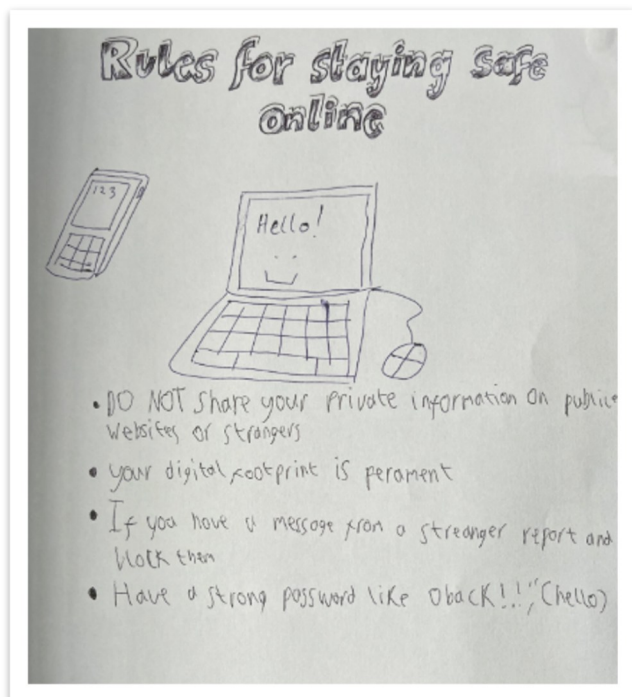 Rules for staying safe
online
123
Hello!
• DO NOT Share your Private information On public
websites or strangers
• your digital footprint is perament
• If you have a message from a streanger report and
block them
• Have a strong password like Oback!!", (hello)